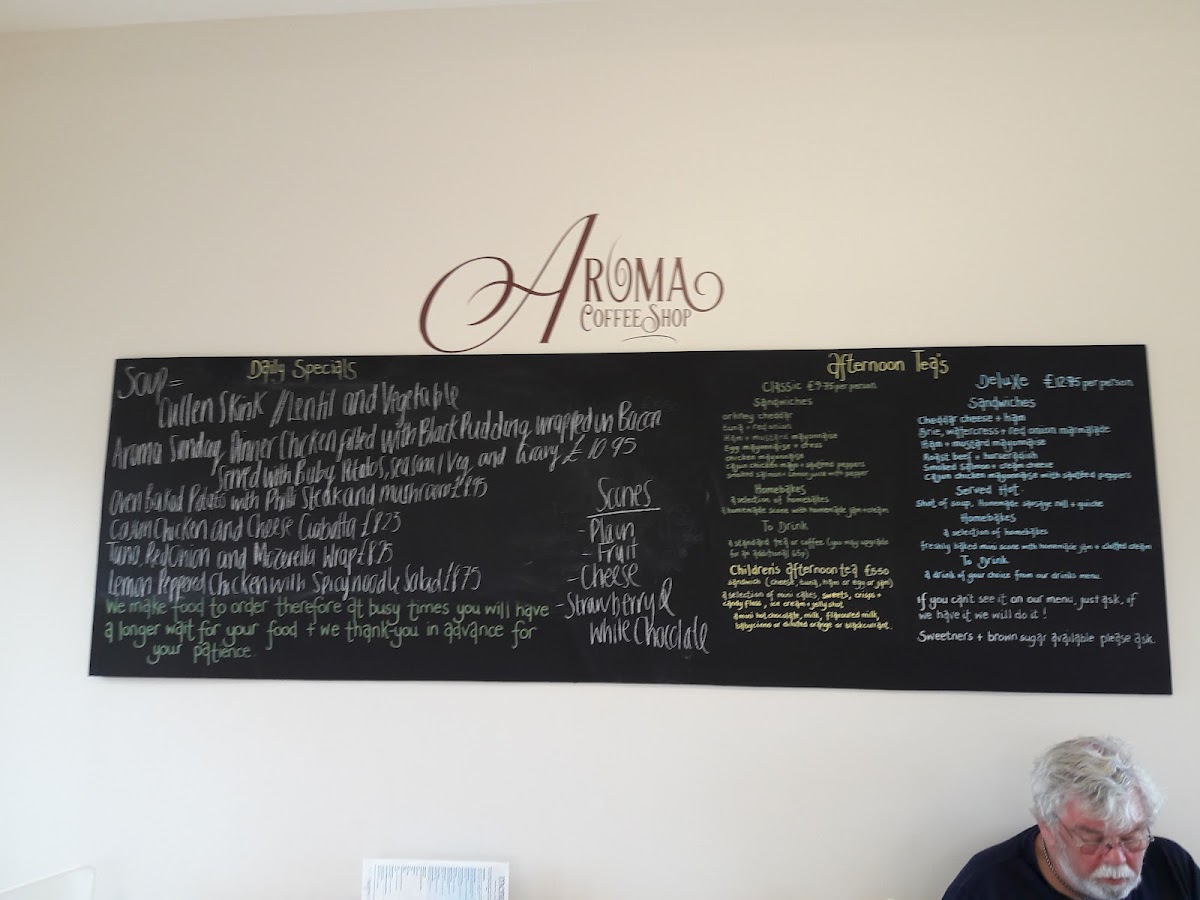 AROMA
COFFEE SHOP
Daily Specials
Soup =
Cullen Skink // Lentil and Vegetable
Aroma Sunday Dinner Chicken filled with Black Pudding wrapped in Bacon
Served with Baby Potatos, seasonal Veg and Gravy £10.95
Oven Baked Potato with Philli Steak and mushroom £8.95
Cajun Chicken and Cheese Ciabatta £8.25
Tuna, Red Onion and Mozerella Wrap £8.25
Lemon Peppered Chicken with Spicy noodle Salad £8.75
We make food to order therefore at busy times you will have
a longer wait for your food + we thank-you in advance for
your patience.
Scones
- Plain
- Fruit
- Cheese
- Strawberry &
White Chocolate
afternoon Tea's
Classic £9.75 per person
Sandwiches
orkney cheddar
tuna + red onion
Ham + mustard mayonnaise
Egg mayonnaise + cress
chicken mayonnaise
cajun chicken mayo + sweet peppers
smoked salmon + with pepper
Homebakes
a selection of homebakes
a homemade scone with homemade jam + cream
To Drink
a standard tea or coffee (you may upgrade
for an additional 65p)
Children's afternoon tea £5.50
sandwich (cheese, tuna, ham or egg or jam)
a selection of mini cakes, sweets, crisps +
candy floss, ice cream + jelly shot
a mini hot chocolate, milk, flavoured milk,
babycinno or diluted orange or blackcurrant.
Deluxe £12.95 per person
Sandwiches
Cheddar cheese + ham
Brie, watercress + red onion marmalade
Ham + mustard mayonnaise
Roast beef + horseradish
Smoked salmon + cream cheese
Cajun chicken mayonnaise with sweet peppers
Served Hot
Shot of soup, Homemade sausage roll + quiche
Homebakes
a selection of homebakes
freshly baked mini scone with homemade jam + clotted cream
To Drink
a drink of your choice from our drinks menu
If you can't see it on our menu, just ask, if
we have it we will do it !
Sweetners + brown sugar available please ask.